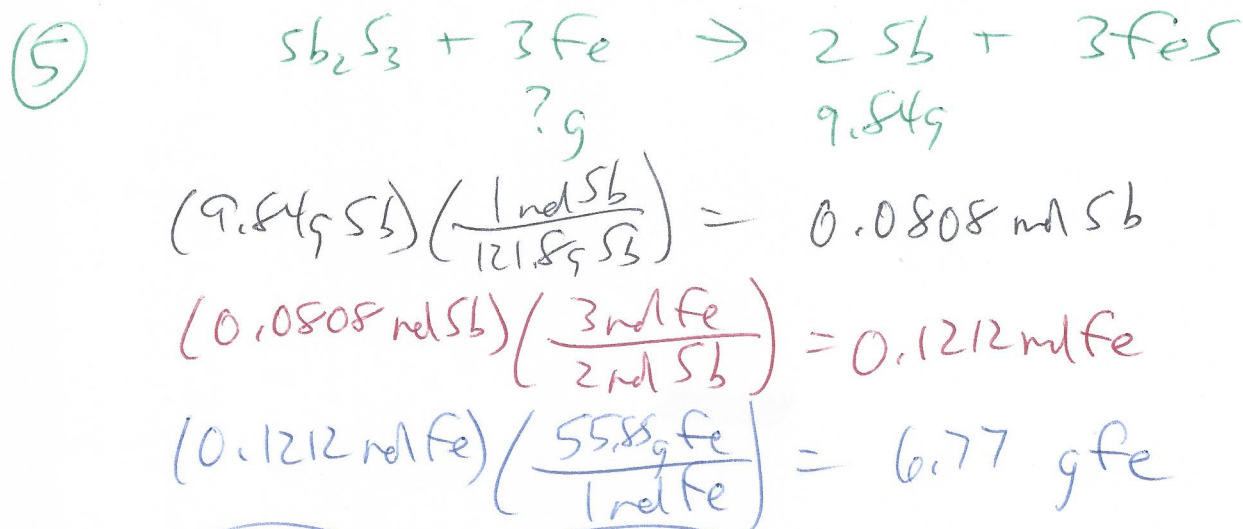 ⑤ Sb₂S₃ + 3 Fe → 2 Sb + 3 FeS
? g 9.84g
(9.84g Sb)(1 mol Sb / 121.8g Sb) = 0.0808 mol Sb
(0.0808 mol Sb)(3 mol Fe / 2 mol Sb) = 0.1212 mol Fe
(0.1212 mol Fe)(55.85g Fe / 1 mol Fe) = 6.77 g Fe